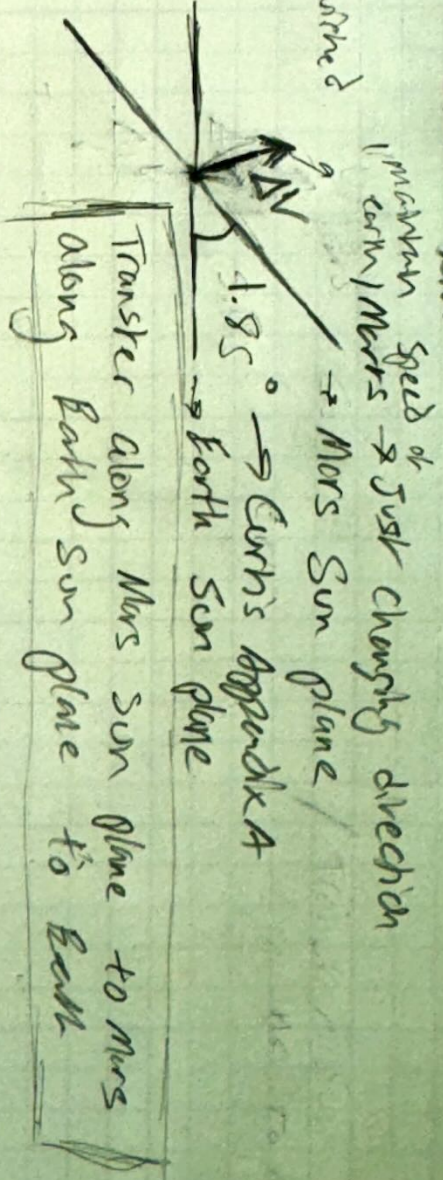 maintain speed of
earth/Mars → Just changing direction
→ Mars Sun plane
ΔV
1.85° → Curtis Appendix A
→ Earth Sun plane
Transfer along Mars sun plane to Mars
along Earth Sun plane to Earth